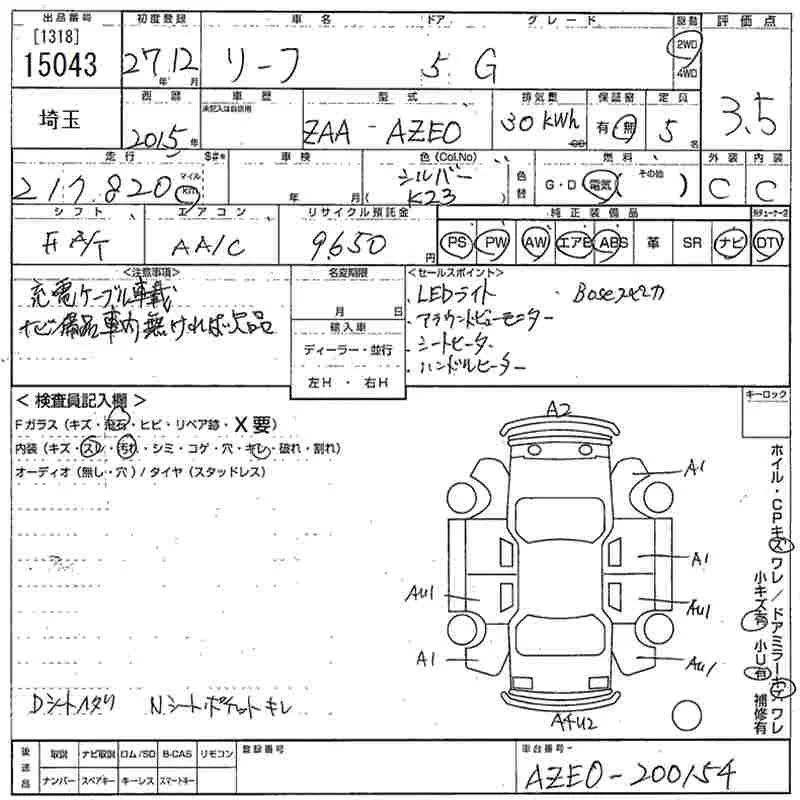 出品番号 初度登録 車名 ドア グレード 駆動 評価点
[1318]
15043 27年12月 リーフ 5 G 2WD 4WD 3.5
埼玉 西暦 車歴 型式 排気量 保証書 定員
未記入は自家用
2015年 ZAA-AZE0 30kWh cc 有・無 5名
走行 S#* 車検 色(Col.No) 燃料 外装 内装
217,820 マイル km 年 月 シルバー ( K23 ) 色替 G・D 電気 (その他) C C
シフト エアコン リサイクル預託金 純正装備品
F A/T AA/C 9,650円 PS PW AW エアB ABS 革 SR ナビ DTV
<注意事項> 名変期限 <セールスポイント>
充電ケーブル車載
ナビ備品車内無ければ欠品
月 日
輸入車
ディーラー・並行
左H・右H
・LEDライト ・Boseスピーカ
・アラウンドビューモニター
・シートヒーター
・ハンドルヒーター
<検査員記入欄> キーロック
Fガラス(キズ・飛石・ヒビ・リペア跡・X要)
内装(キズ・スレ・汚れ・シミ・コゲ・穴・キレ・破れ・割れ)
オーディオ(無し・穴)/タイヤ(スタッドレス)
A2
A1
A1
AU1
AU1
A1
AU1
A4U2
ホイル・CPキズ ワレ/ドアミラーキズ ワレ
小キズ有 小U有 補修有
Dシートヘタリ Nシートポケットキレ
後送品 取説 ナビ取説 ロム/SD B-CAS リモコン 登録番号 車台番号
ナンバー スペアキー キーレス スマートキー
AZE0-200154